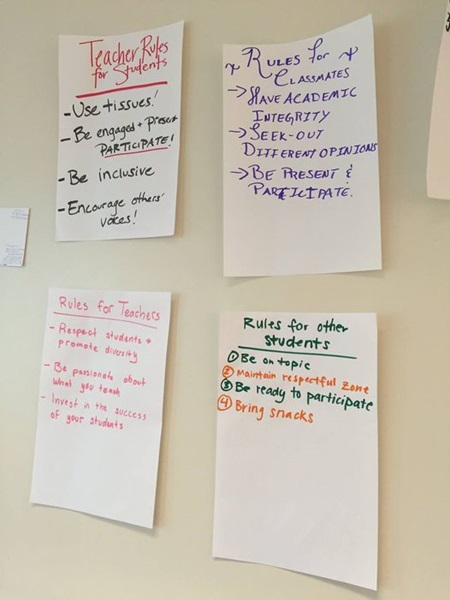 Teacher Rules
for Students
- Use tissues!
- Be engaged + present
PARTICIPATE!
- Be inclusive
- Encourage others'
voices!
RULES for
CLASSMATES
→ HAVE ACADEMIC
INTEGRITY
→ SEEK-OUT
DIFFERENT OPINIONS
→ BE PRESENT &
PARTICIPATE.
Rules for Teachers
- Respect students +
promote diversity
- Be passionate about
what you teach
- Invest in the success
of your students
Rules for other
students
① Be on topic
② Maintain respectful zone
③ Be ready to participate
④ Bring snacks